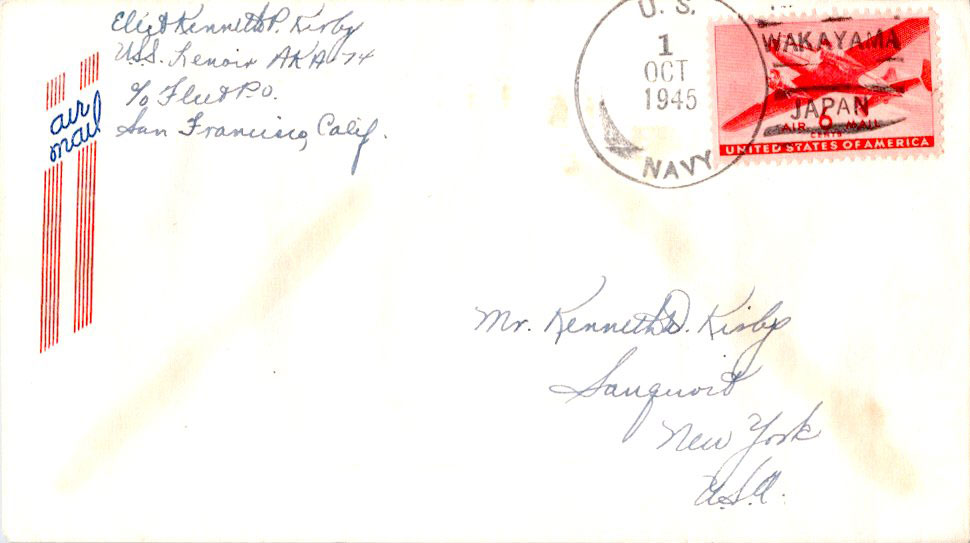 Elizt Kenneth P. Kirby
U.S.S. Lenoir AKA-74
c/o Fleet P.O.
San Francisco, Calif.
air
mail
U. S.
1
OCT
1945
NAVY
WAKAYAMA
JAPAN
6
AIR MAIL
CENTS
UNITED STATES OF AMERICA
Mr. Kenneth D. Kirby
Sauquoit
New York
U.S.A.